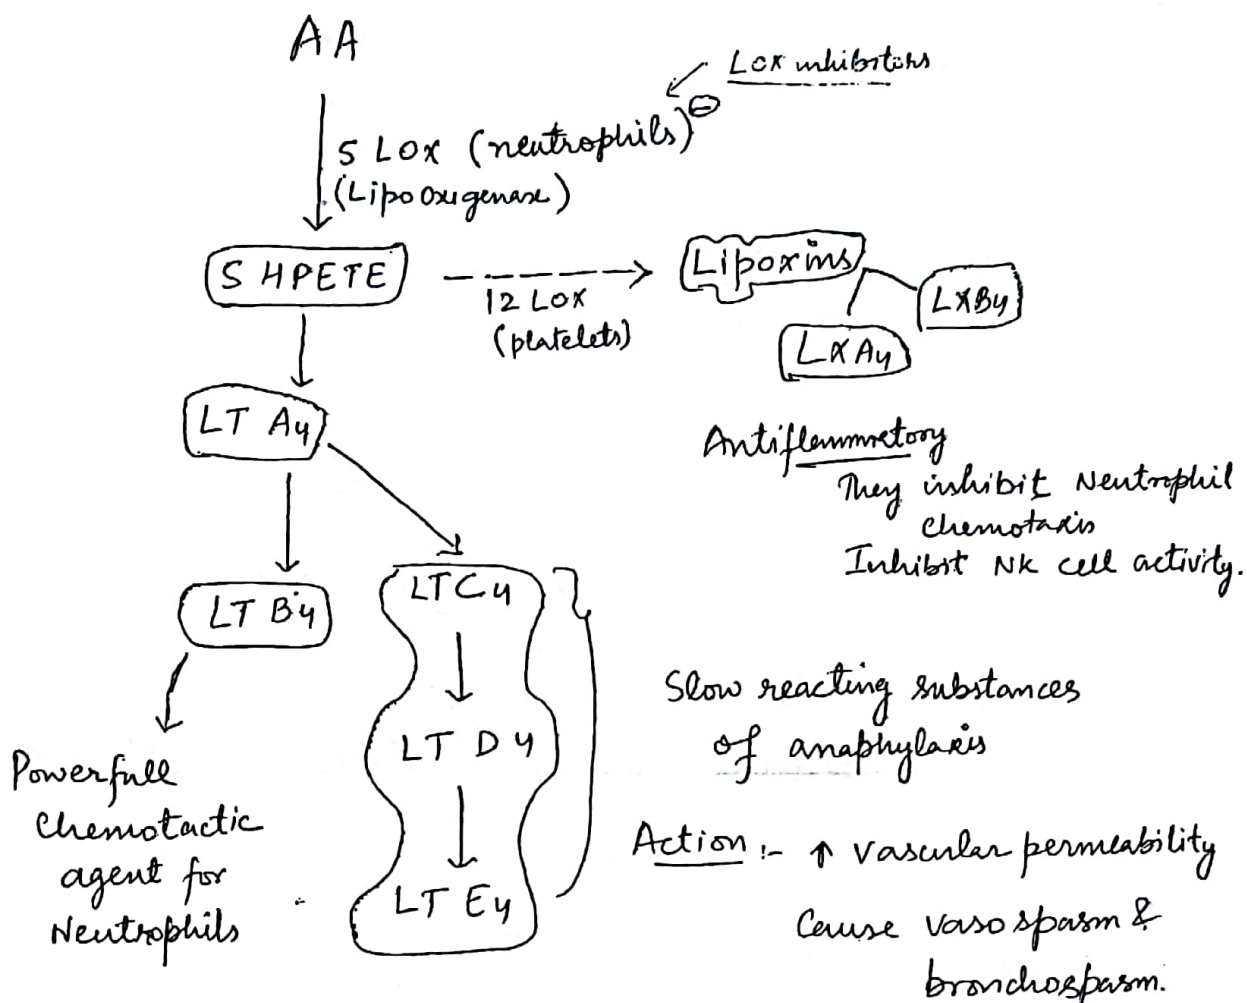 AA
Lox inhibitors
5 Lox (neutrophils) ⊖
(Lipo Oxigenase)
5 HPETE
12 Lox
(platelets)
Lipoxins
LXB4
LXA4
LT A4
Antiflammetory
They inhibit Neutrophil
chemotaxis
Inhibit NK cell activity.
LT B4
LTC4
LT D4
LT E4
Slow reacting substances
of anaphylaxis
Powerfull
Chemotactic
agent for
Neutrophils
Action :- ↑ vascular permeability
Cause vasospasm &
bronchospasm.